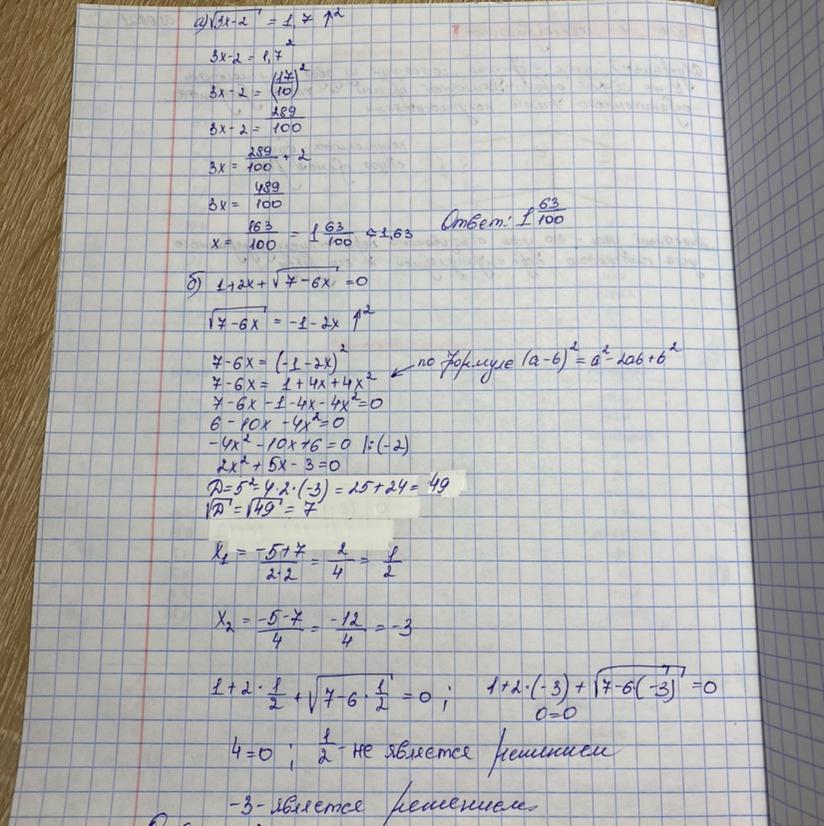 а) √3x-2 = 1,7 ↑²
3x-2 = 1,7²
3x-2 = (17/10)²
3x-2 = 289/100
3x = 289/100 + 2
3x = 489/100
x = 163/100 = 1 63/100 ≈ 1,63 Ответ: 1 63/100
б) 1+2x+√7-6x = 0
√7-6x = -1-2x ↑²
7-6x = (-1-2x)²
7-6x = 1+4x+4x² ← по формуле (a-b)² = a²-2ab+b²
7-6x-1-4x-4x²=0
6-10x-4x²=0
-4x²-10x+6=0 |:(-2)
2x²+5x-3=0
D=5²-4·2·(-3)=25+24=49
√D=√49=7
x₁ = -5+7/2·2 = 2/4 = 1/2
x₂ = -5-7/4 = -12/4 = -3
1+2·1/2+√7-6·1/2=0; 1+2·(-3)+√7-6·(-3)=0
0=0
4=0; 1/2-не является решением
-3-является решением.